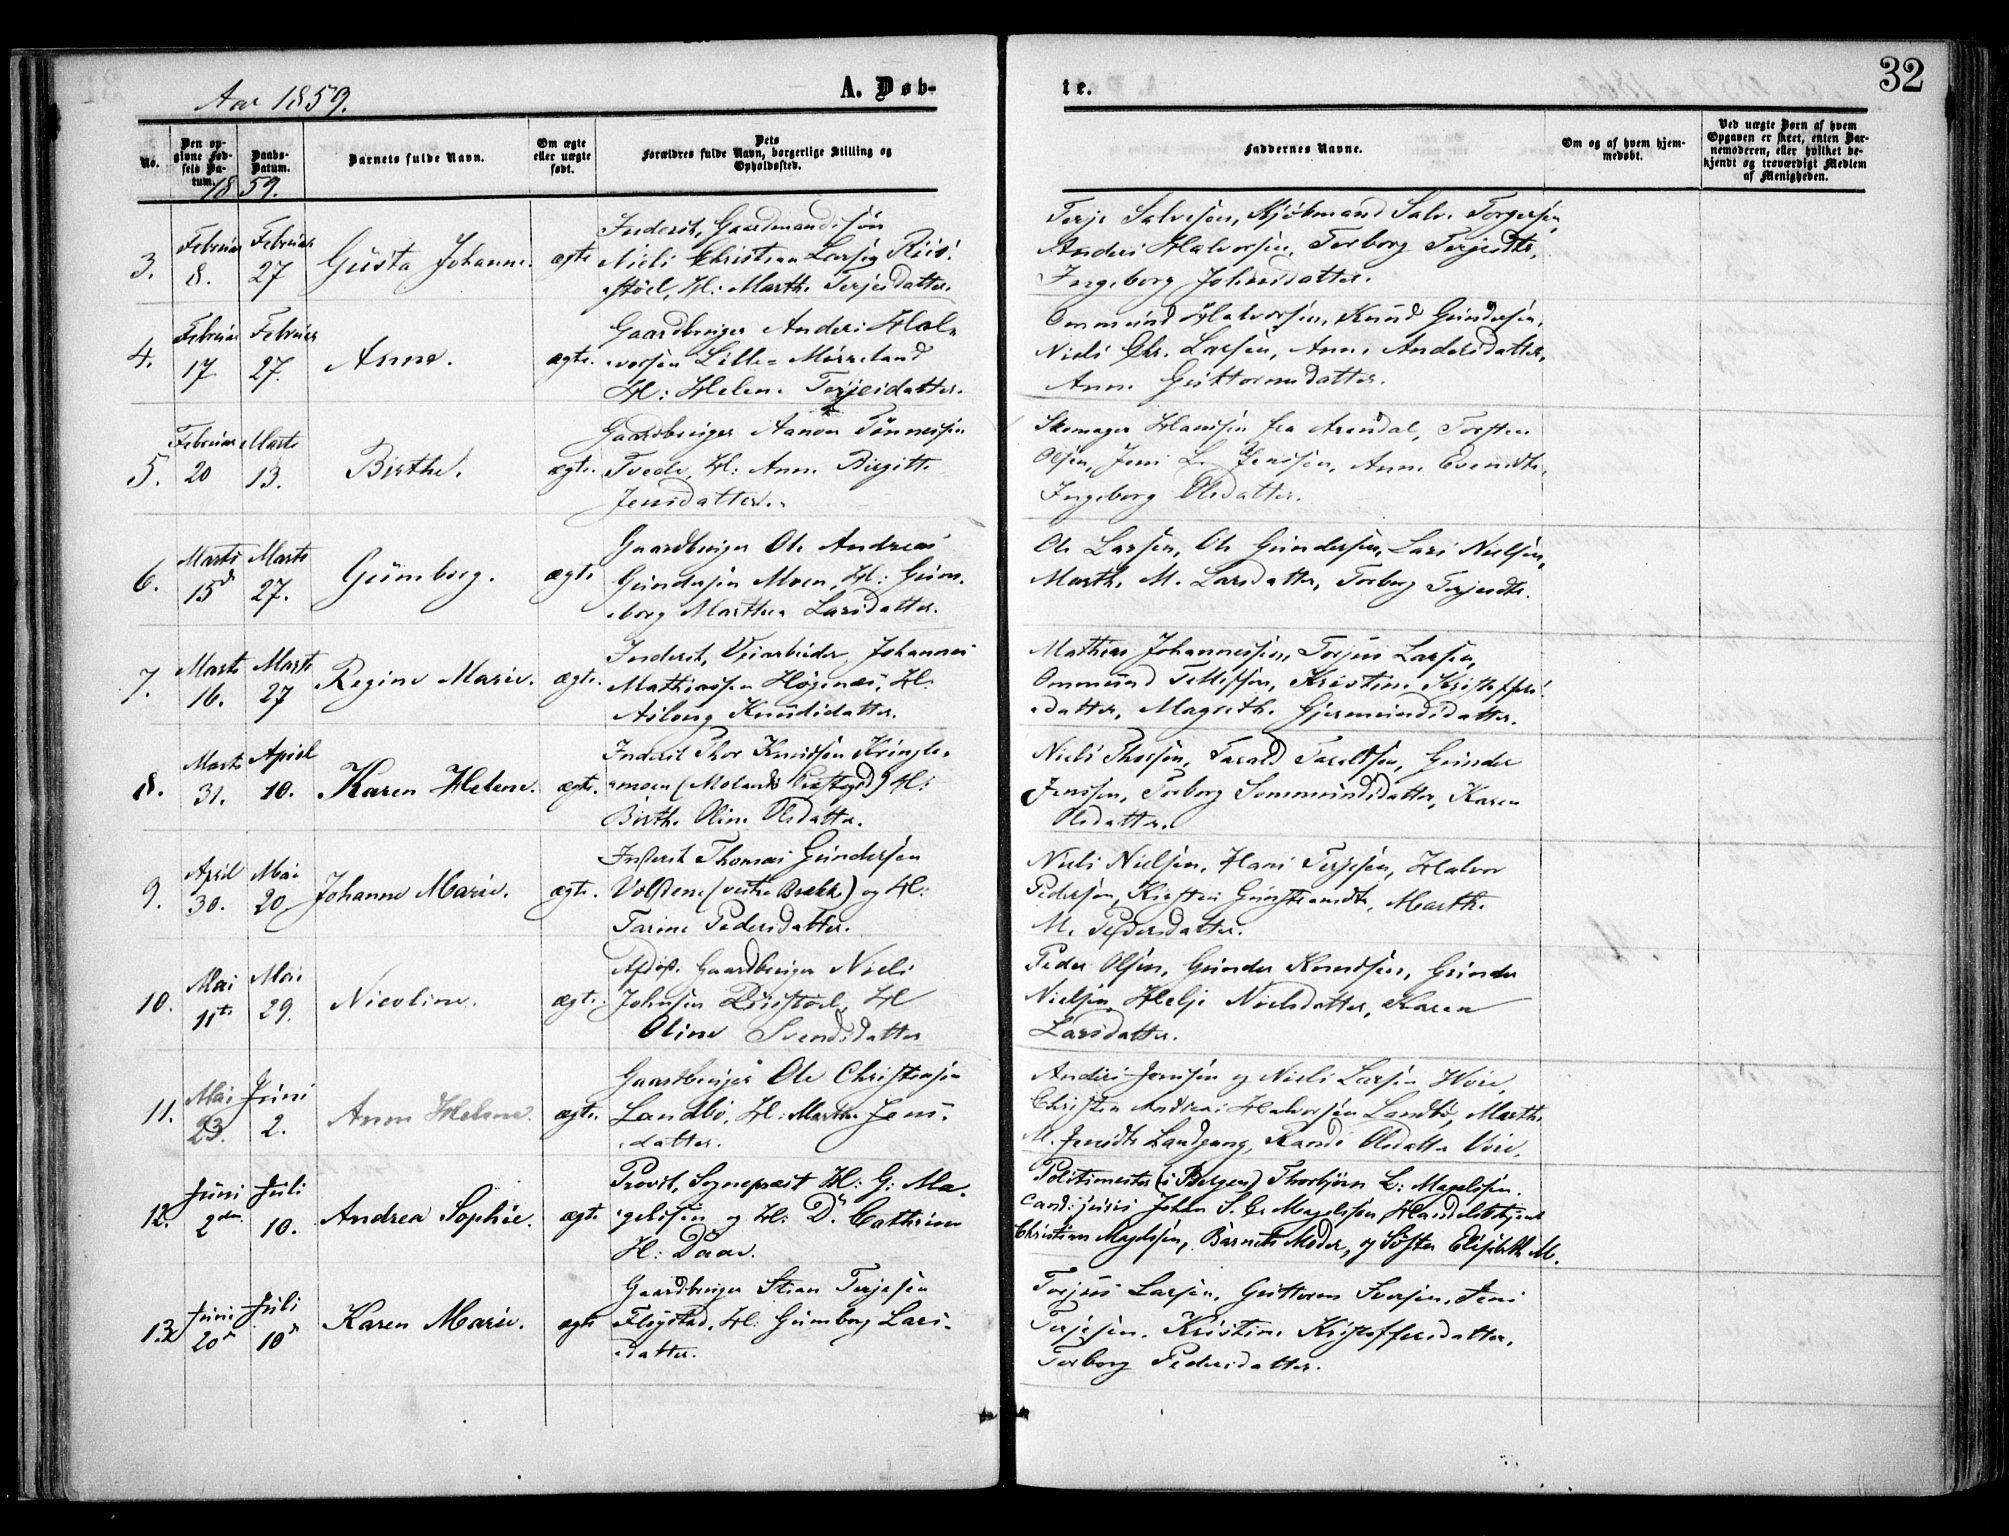 32
Aar 1859.
A. Døb-
te.
No.
Den opgivne Fødsels Datum.
Daabs-Datum.
Barnets fulde Navn.
Om ægte eller uægte født.
Dets Forældres fulde Navn, borgerlige Stilling og Opholdssted.
Faddernes Navne.
Om og af hvem hjemmedøbt.
Ved uægte Børn af hvem Opgaven er skeet, enten Barnemoderen, eller hvilket bekjendt og troværdigt Medlem af Menigheden.
1859.
3. Februar 8. Februar 27 Gusta Johanne. ægte
Inderst, Gaardmandssøn
Niels Christian Larsen Riis-
støel, H: Marthe Terjesdatter.
Terje Salvesen, Kjøbmand Salve Torgersen,
Anders Halvorsen, Torborg Terjesdtr,
Ingeborg Johnsdatter.
4. Februar 17 Februar 27. Anne. ægte.
Gaardbruger Anders Hal-
vorsen Lille-Mørreland
H: Helene Terjesdatter.
Ommund Halvorsen, Knud Gundersen,
Niels Chr. Larsen, Anne Andersdatter,
Anne Guttormsdatter.
5. Februar 20 Marts 13. Birthe. ægte.
Gaardbruger Aanon Tønnesen
Tvede, H: Anne Birgitte
Jensdatter.
Skomager Hansen fra Arendal, Torsten
Olsen, Jens L. Jensen, Anne Evensdtr,
Ingeborg Olsdatter.
6. Marts 15d Marts 27. Gumborg. ægte
Gaardbruger Ole Andreas
Gundersen Moen, H: Gum-
borg Marthea Larsdatter.
Ole Larsen, Ole Gundersen, Lars Nielsen,
Marthe M. Larsdatter, Torborg Terjesdtr.
7. Marts 16. Marts 27 Regine Marie. ægte.
Inderst, Veiarbeider, Johannes
Mathiassen Høgenæs, H:
Asloug Knudsdatter.
Mathias Johannessen, Torjus Larsen,
Ommund Tellefsen, Kristine Kristoffers-
datter, Magrethe Gjermundsdatter.
8. Marts 31. April 10. Karen Helene. ægte.
Inderst Thor Knudsen Kringle-
moen (Molands Præstegd) H:
Birthe Oline Olsdatter.
Niels Thorsen, Tarald Taraldsen, Gunder
Jensen, Torborg Sommundsdatter, Karen
Olsdatter.
9. April 30. Mai 20 Johanne Marie. ægte.
Inderst Thomas Gundersen
Volstene (vestre Brække) og H:
Tarine Pedersdatter.
Niels Nielsen, Hans Terjesen, Halvor
Pedersen, Kirsten Gunstensdtr, Marthe
M. Pedersdatter.
10. Mai 11te Mai 29. Nicoline. ægte.
Afdøde Gaardbruger Niels
Johnsen Riisstøel, H
Oline Svendsdatter
Peder Olsen, Gunder Knudsen, Gunder
Nielsen, Helje Nielsdatter, Karen
Larsdatter.
11. Mai 23. Juni 2. Anne Helene. ægte.
Gaardbruger Ole Christensen
Landbø, H: Marthe Jens-
datter.
Anders Jensen og Niels Larsen Vore,
Christen Andreas Halvorsen Landbø, Marthe
M. Jensdtr Landgang, Randi Olsdatter Vore.
12. Juni 2den Juli 10. Andrea Sophie. ægte
Provst, Sognepræst H: G: Ma-
gelssen og H: D. Cathrine
H: Daae.
Politimester (i Bergen) Thorbjørn L: Magelssen.
Cand: juris Johan S. C. Magelssen, Handelsbetjent
Christian Magelssen, Barnets Moder, og Søster Elisabeth M.
13. Juni 20d Juli 10d Karen Marie. ægte
Gaardbruger Stian Terjesen
Fløgstad, H: Gumborg Lars-
datter.
Torjus Larsen, Guttorm Iversen, Jens
Terjesen, Kristine Kristoffersdatter,
Torborg Pedersdatter.